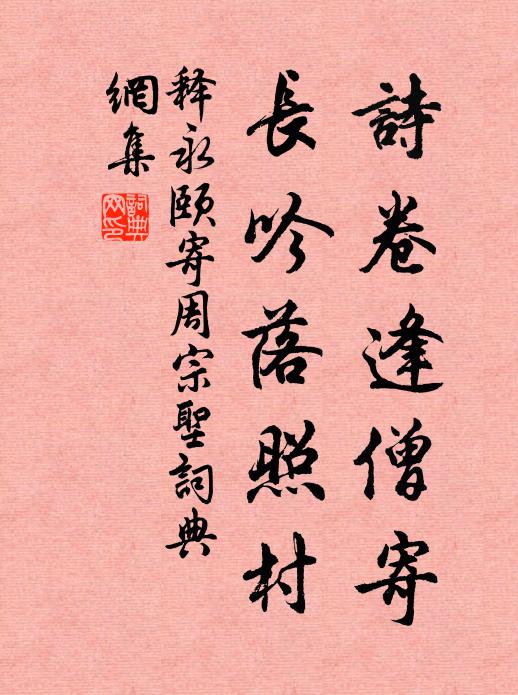 詩卷逢僧寄
長吟落照村
释永颐寄周宗聖詞典
網集
詞典
网印